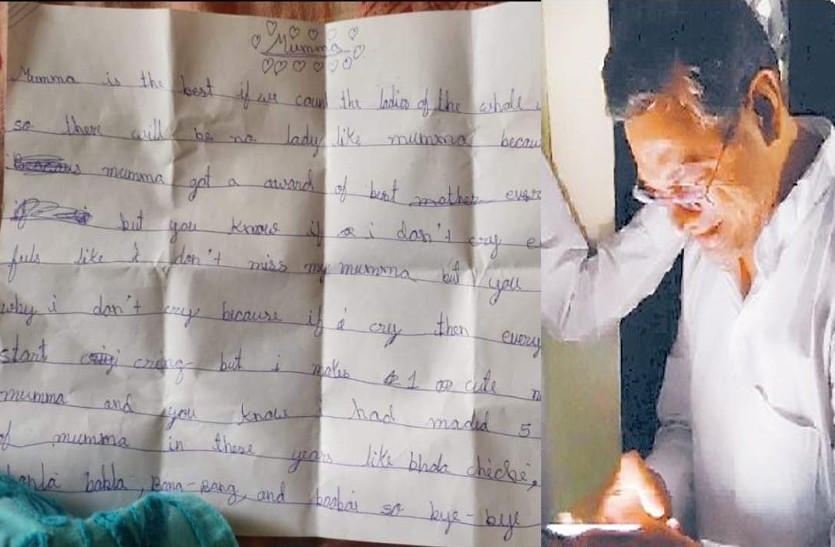 Mumma
Mumma is the best if we count the ladies of the whole
so there will be no lady like mumma becau
mumma got a award of best mother ever
but you know if i don't cry e
feels like i don't miss my mumma but you
why i don't cry because if i cry then every
start creng but i makes 1 cute n
mumma and you know i had maded 5
of mumma in these years like bhola chichi,
babla, Bana-Bang, and babai so bye-bye